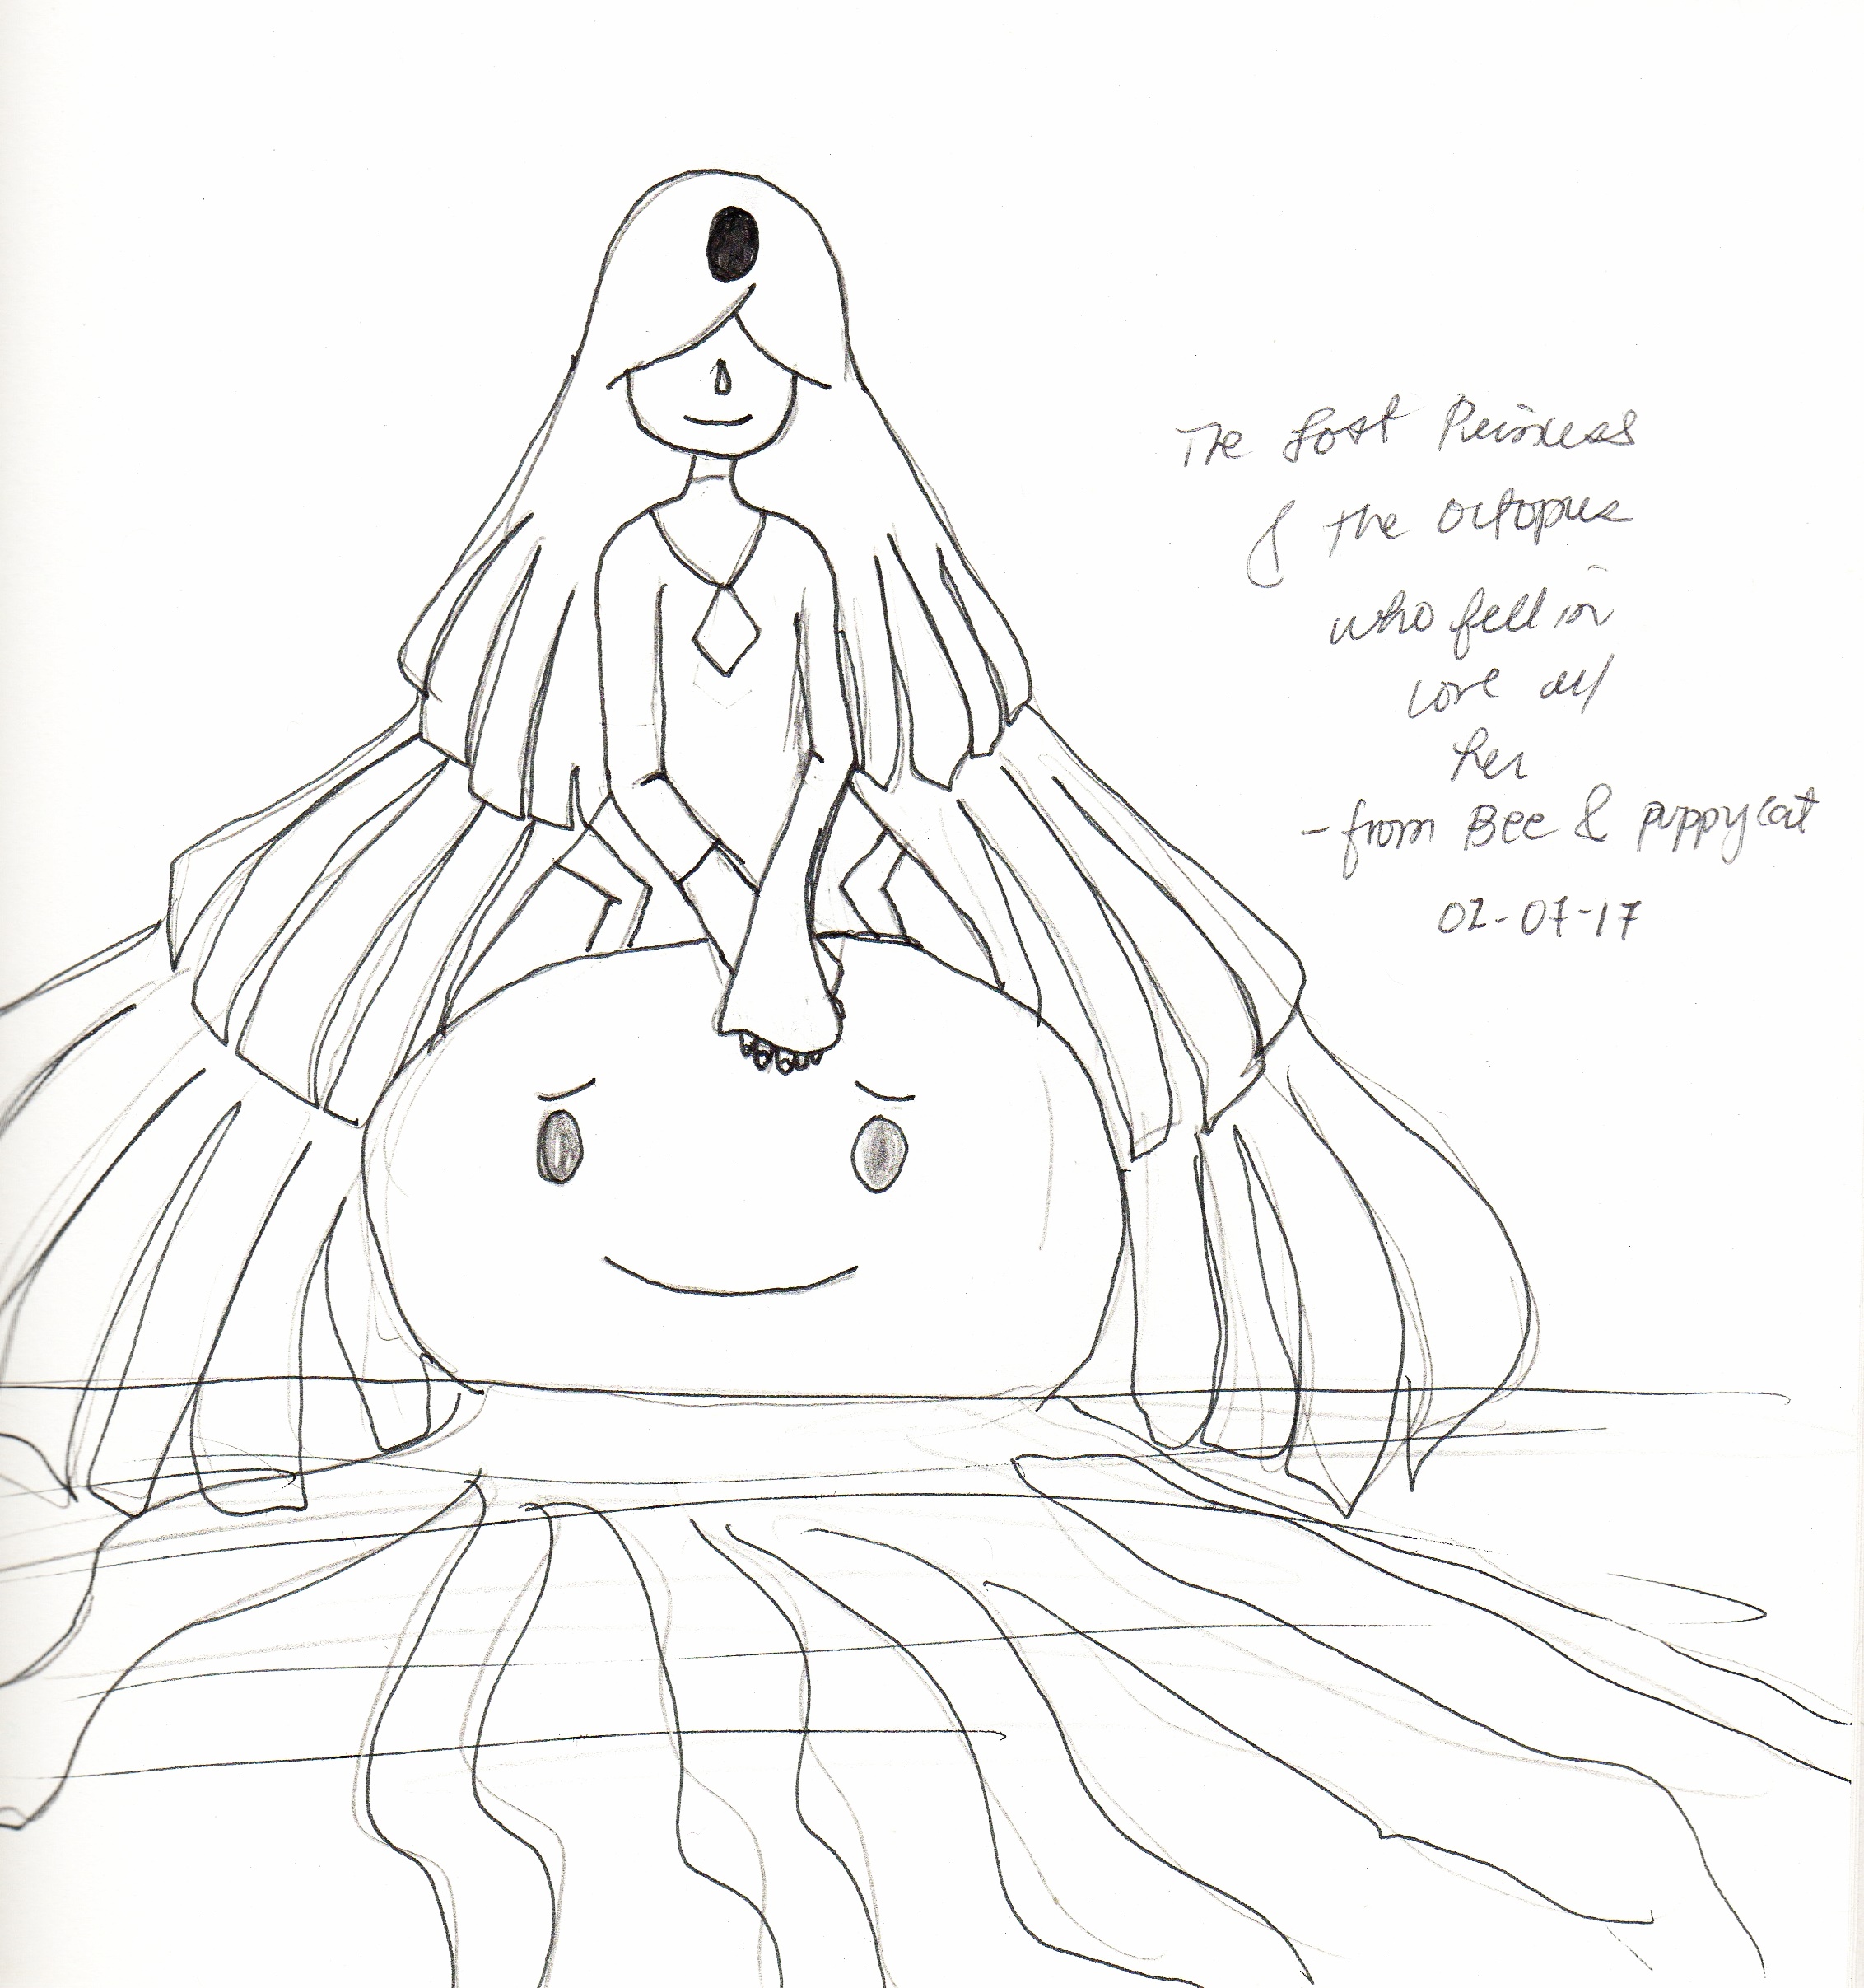 The Lost Princess
& the octopus
who fell in
love w/
her
- from Bee & puppycat
02-07-17